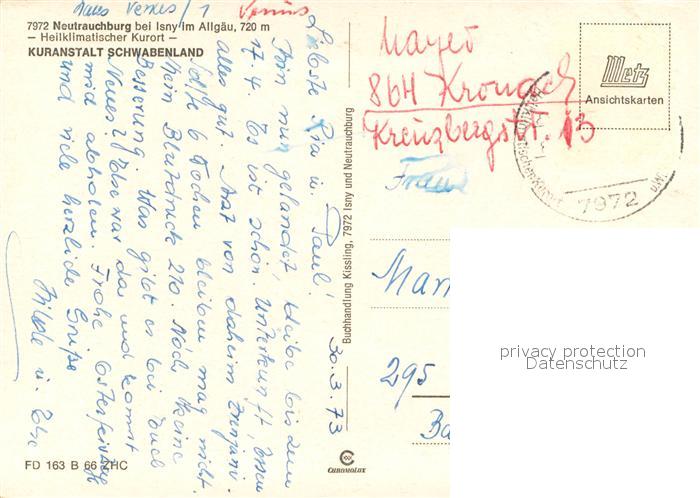 Haus Venus/1 Venus
7972 Neutrauchburg bei Isny im Allgäu, 720 m
— Heilklimatischer Kurort —
KURANSTALT SCHWABENLAND
Liebste Ria u. Paul!
Bin nun gelandet, bleibe bis zum
17.4. Es ist schön. Unterkunft, Essen
alles gut. Arzt von daheim
Sollte 6 Wochen bleiben mag nicht.
Mein Blutdruck 210. Noch keine
Besserung. Was gibt es bei Euch
Neues? Ilse war da und kommt
mich abholen. Frohe Osterfeiertage
und viele herzliche Grüße
Hilde u. Ilse
30.3.73
Buchhandlung Kissling, 7972 Isny und Neutrauchburg
FD 163 B 66 ZHC
CHROMOLUX
Mayer
864 Kronach
Kreuzbergstr. 13
Metz
Ansichtskarten
7972
Frau
295
privacy protection
Datenschutz